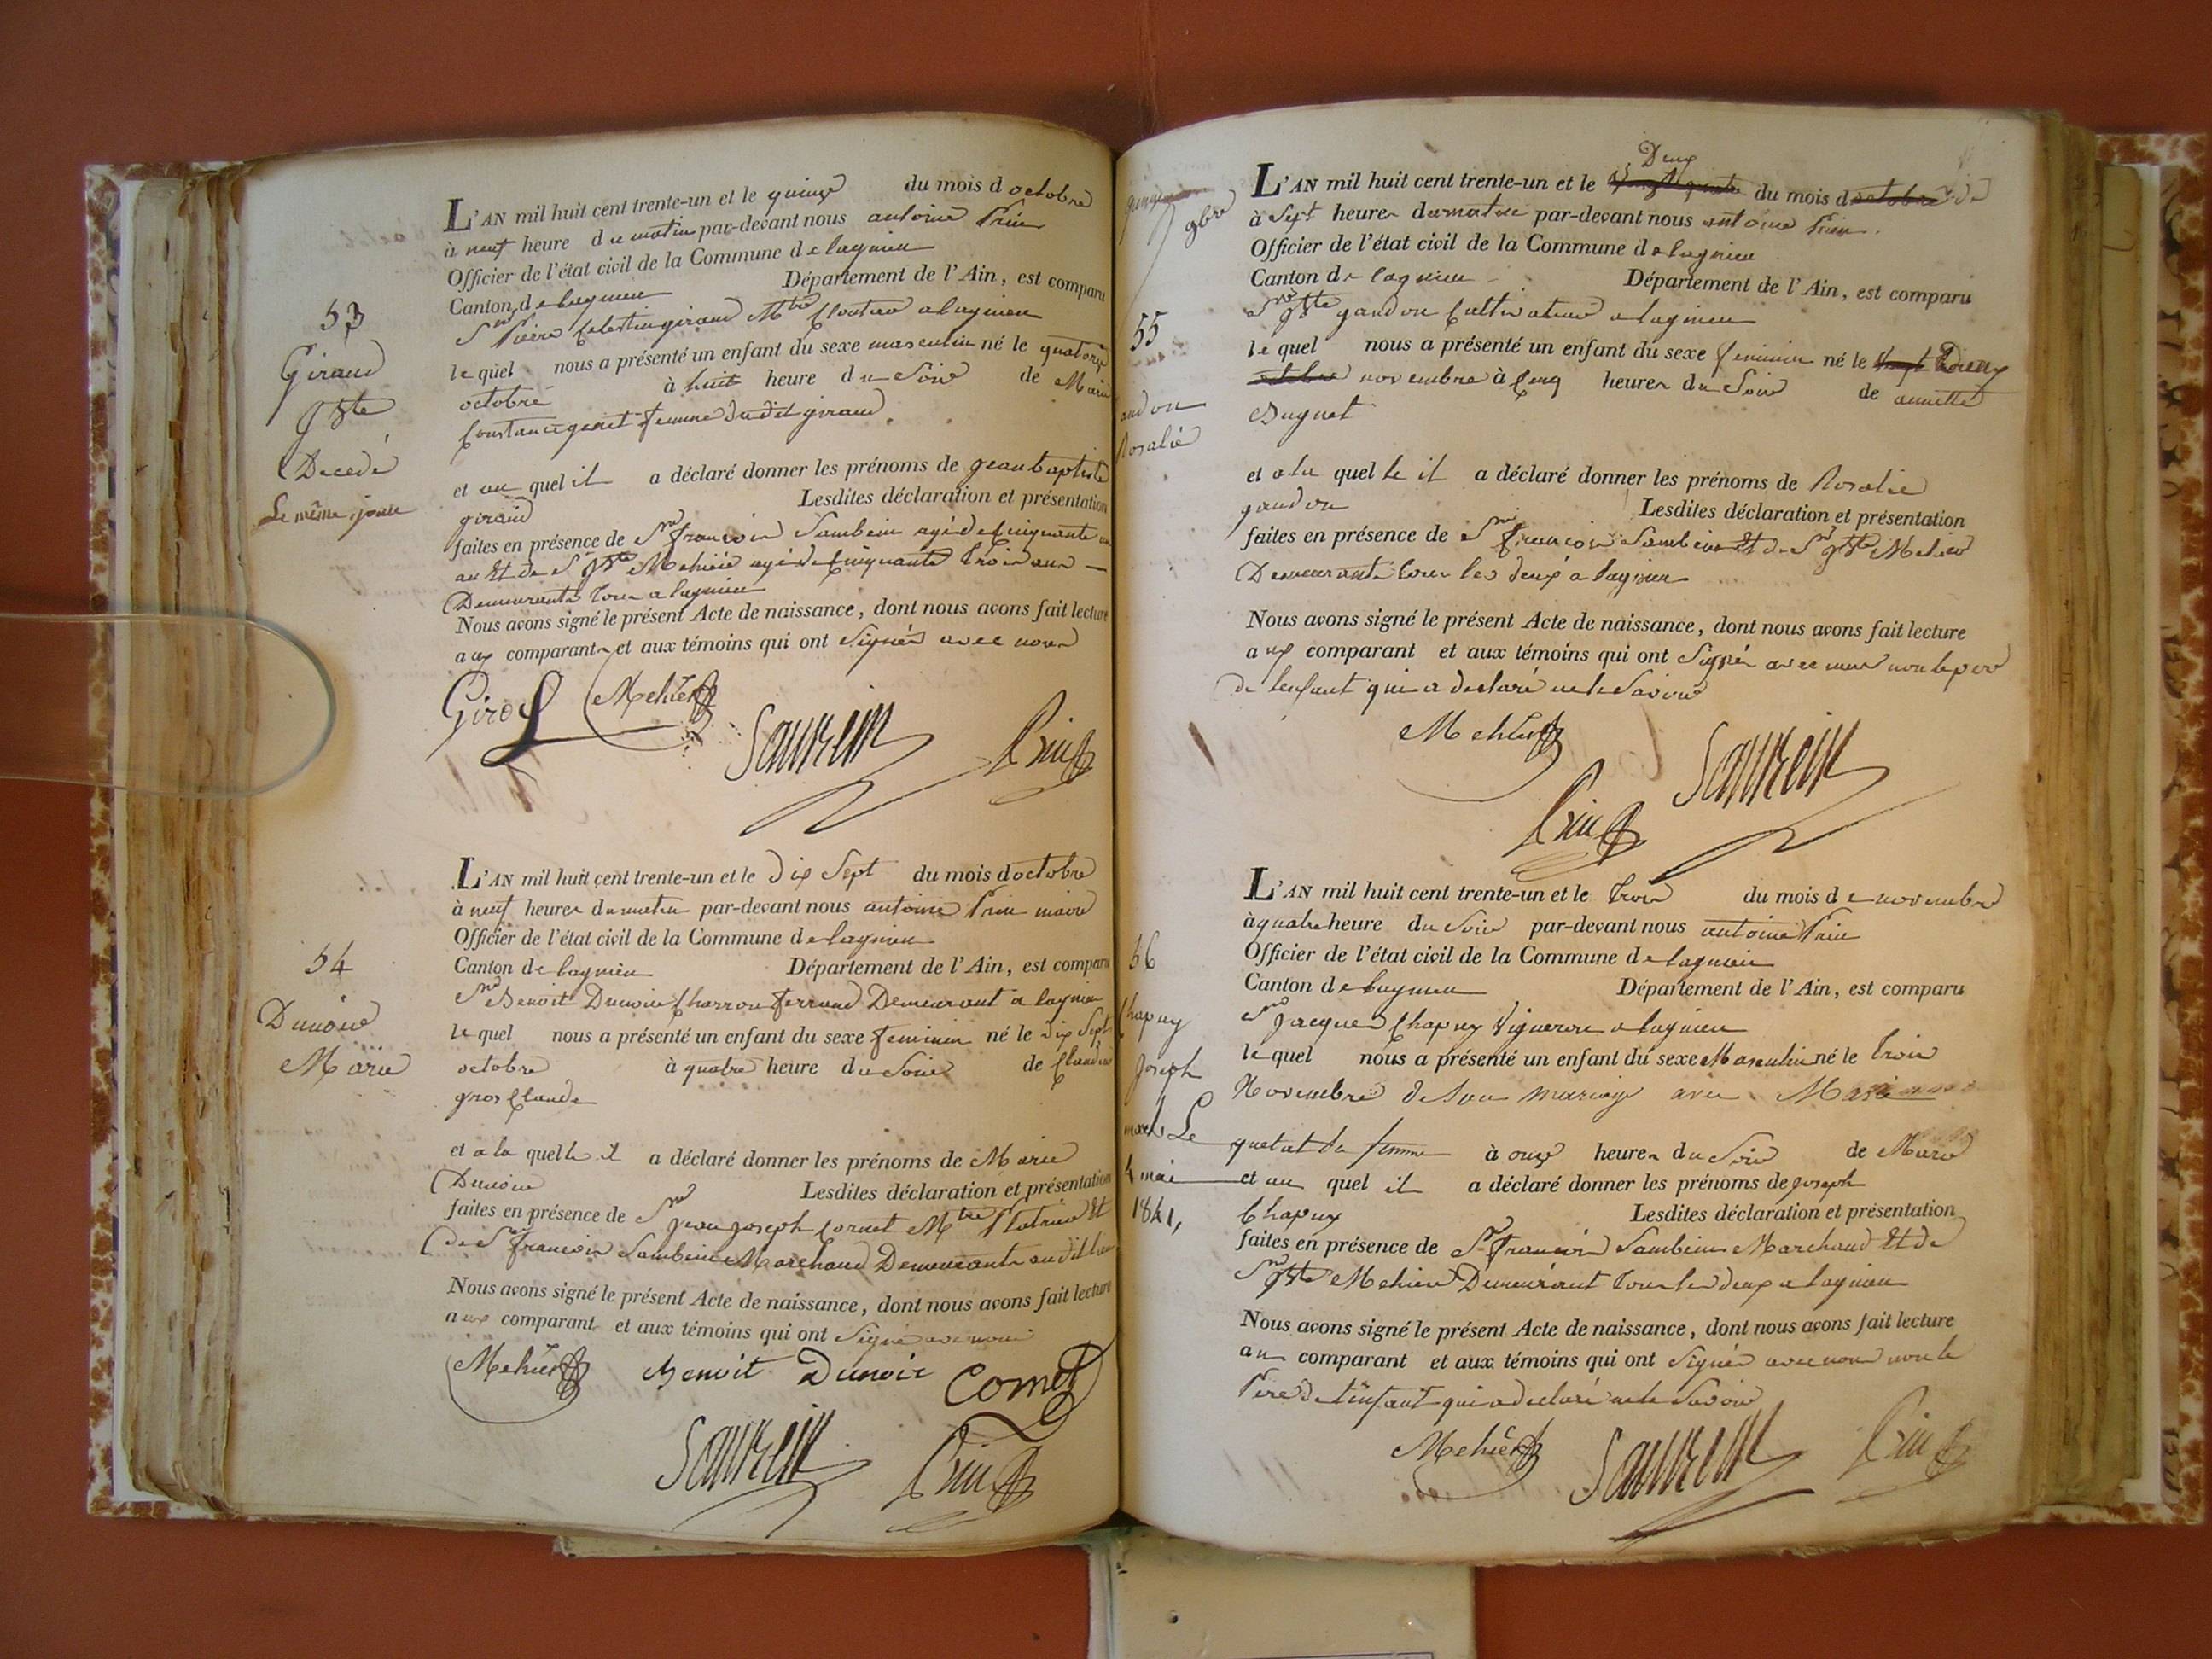 53
Giraud
Jn Bte
Décédé
Le même jour
L'AN mil huit cent trente-un et le quinze du mois d octobre
à neuf heure du matin par-devant nous antoine Prin
Officier de l'état civil de la Commune de lagnieu
Canton de lagnieu Département de l'Ain, est comparu
Sr Pierre Celestin giraud Mtre Cloutier a lagnieu
le quel nous a présenté un enfant du sexe masculin né le quatorze
octobre à huit heure du Soir de Marie
Constance genet femme dudit giraud
et au quel il a déclaré donner les prénoms de jean baptiste
giraud Lesdites déclaration et présentation
faites en présence de Sr françois Sambein agé de Cinquante un
an Et de Sr Jn Bte Mehier agé de Cinquante trois ans
Demeurants tous a lagnieu
Nous avons signé le présent Acte de naissance, dont nous avons fait lecture
aux comparants et aux témoins qui ont Signés avec nous
Mehier
Prin
54
Dunoir
Marie
L'AN mil huit cent trente-un et le Dix Sept du mois d octobre
à neuf heures du matin par-devant nous antoine Prin maire
Officier de l'état civil de la Commune de lagnieu
Canton de lagnieu Département de l'Ain, est comparu
Sr Benoit Dunoir Charron ferrand Demeurant a lagnieu
le quel nous a présenté un enfant du sexe feminin né le Dix Sept
octobre à quatre heure du Soir de Claudine
gros Claude
et a la quelle il a déclaré donner les prénoms de Marie
Dunoir Lesdites déclaration et présentation
faites en présence de Sr jean joseph Cornet Mtre Platrier Et
de Sr françois Sambein Marchand Demeurants audit lieu
Nous avons signé le présent Acte de naissance, dont nous avons fait lecture
aux comparants et aux témoins qui ont Signé avec nous
Mehier Benoit Dunoir Cornet
Prin
9bre
55
Rosalie
L'AN mil huit cent trente-un et le Deux du mois d
à Sept heures du matin par-devant nous antoine Prin
Officier de l'état civil de la Commune de lagnieu
Canton de lagnieu Département de l'Ain, est comparu
Sr Jn Bte gandon Cultivateur a lagnieu
le quel nous a présenté un enfant du sexe feminin né le
novembre à Cinq heures du Soir de annette
Bugnet
et a la quelle il a déclaré donner les prénoms de Rosalie
gandon Lesdites déclaration et présentation
faites en présence de Sr françois Sambein Et de Sr Jn Bte Mehier
Demeurants tous les deux a lagnieu
Nous avons signé le présent Acte de naissance, dont nous avons fait lecture
aux comparant et aux témoins qui ont Signés avec nous non le pere
de lenfant qui a declaré ne le Savoir
Mehier
Prin
56
Chapuy
Joseph
mort Le
4 mai
1841,
L'AN mil huit cent trente-un et le trois du mois d e novembre
à quatre heure du Soir par-devant nous antoine Prin
Officier de l'état civil de la Commune de lagnieu
Canton de lagnieu Département de l'Ain, est comparu
Sr jacques Chapuy Vigneron a lagnieu
le quel nous a présenté un enfant du sexe Masculin né le trois
Novembre de son mariage avec Marie
quetat sa femme à onze heures du Soir de Marie
et au quel il a déclaré donner les prénoms de joseph
Chapuy Lesdites déclaration et présentation
faites en présence de Sr françois Sambein Marchand Et de
Sr Jn Bte Mehier Demeurant tous les deux a lagnieu
Nous avons signé le présent Acte de naissance, dont nous avons fait lecture
au comparant et aux témoins qui ont Signés avec nous non le
Pere de l'enfant qui a declaré ne le Savoir
Mehier
Prin